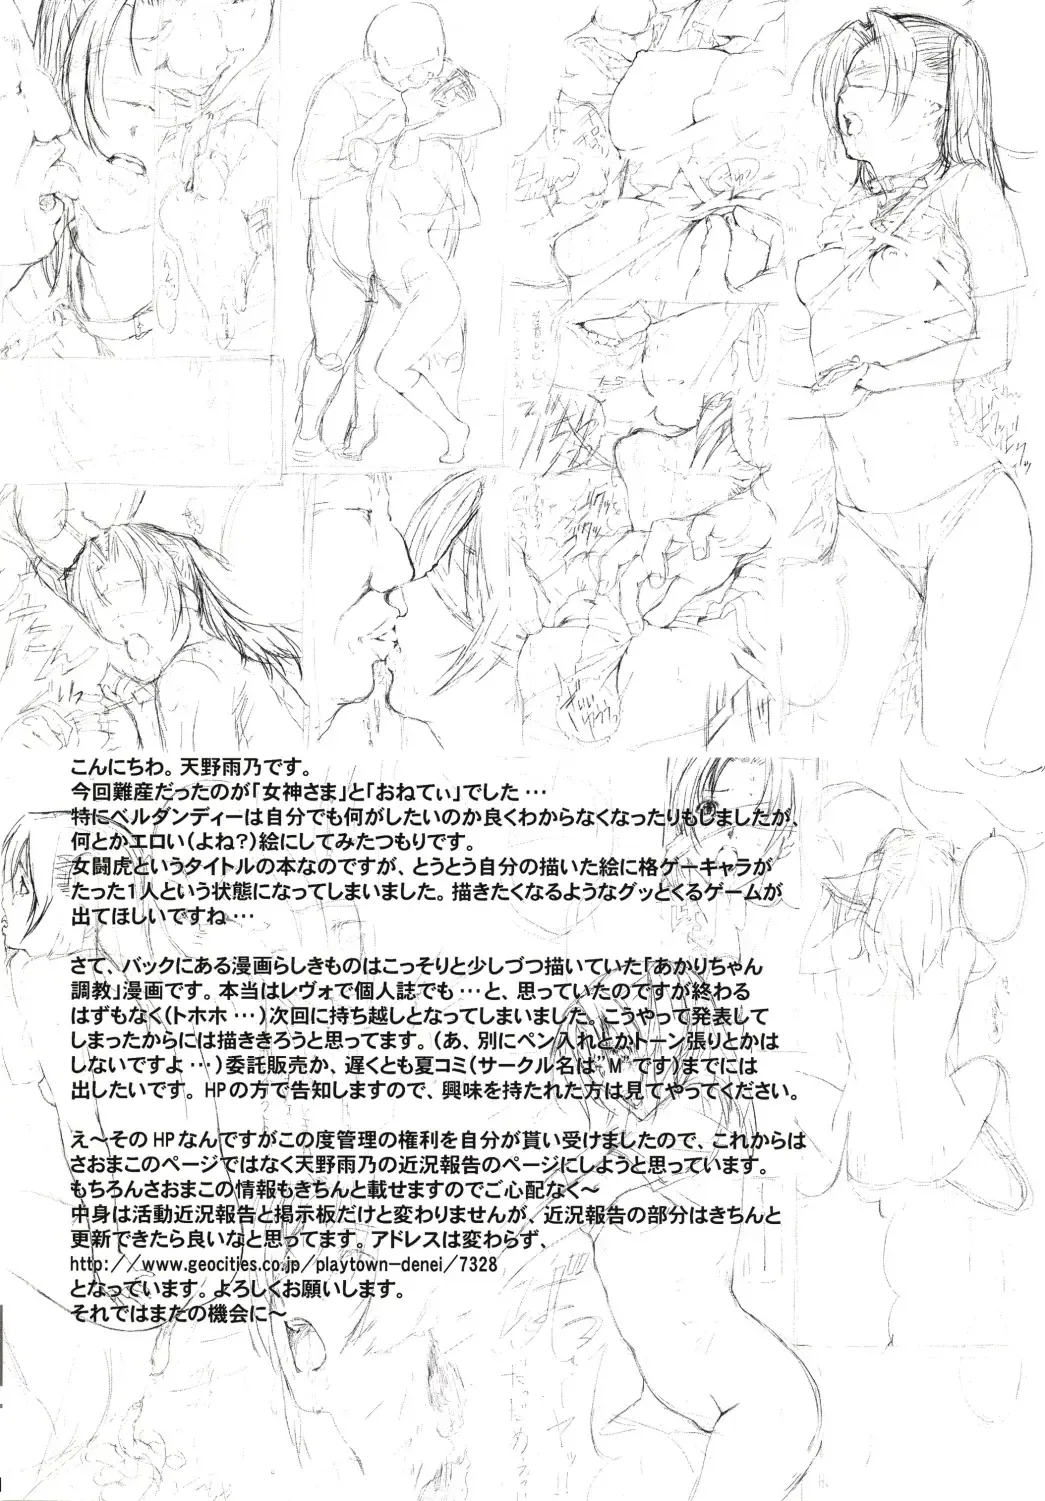 こんにちわ。天野雨乃です。
今回難産だったのが「女神さま」と「おねてぃ」でした…
特にベルダンディーは自分でも何がしたいのか良くわからなくなったりもしましたが、
何とかエロい(よね?)絵にしてみたつもりです。
女闘虎というタイトルの本なのですが、とうとう自分の描いた絵に格ゲーキャラが
たった1人という状態になってしまいました。描きたくなるようなグッとくるゲームが
出てほしいですね…
さて、バックにある漫画らしきものはこっそりと少しづつ描いていた「あかりちゃん
調教」漫画です。本当はレヴォで個人誌でも…と、思っていたのですが終わる
はずもなく(トホホ…)次回に持ち越しとなってしまいました。こうやって発表して
しまったからには描ききろうと思ってます。(あ、別にペン入れとかトーン張りとかは
しないですよ…)委託販売か、遅くとも夏コミ(サークル名は"M"です)までには
出したいです。HPの方で告知しますので、興味を持たれた方は見てやってください。
え~そのHPなんですがこの度管理の権利を自分が貰い受けましたので、これからは
さおまこのページではなく天野雨乃の近況報告のページにしようと思っています。
もちろんさおまこの情報もきちんと載せますのでご心配なく~
中身は活動近況報告と掲示板だけと変わりませんが、近況報告の部分はきちんと
更新できたら良いなと思ってます。アドレスは変わらず、
http://www.geocities.co.jp/playtown-denei/7328
となっています。よろしくお願いします。
それではまたの機会に~